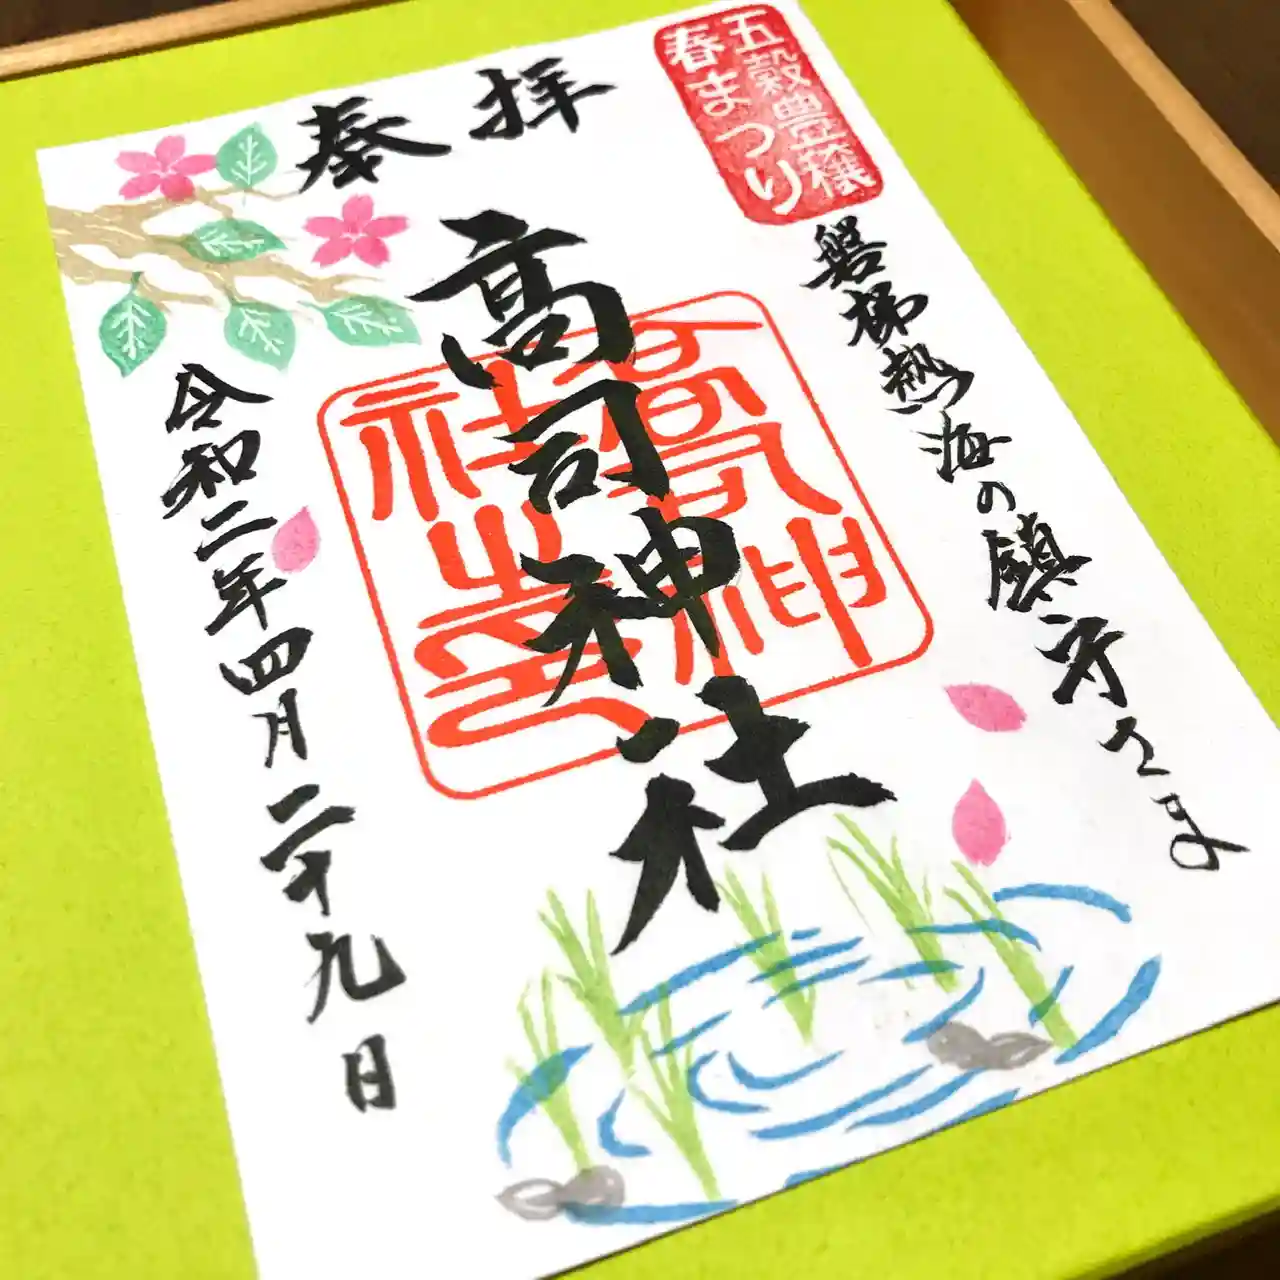 五穀豊穣
春まつり
奉拝
磐梯熱海の鎮守さま
高司神社
高司神
社之印
令和二年四月二十九日